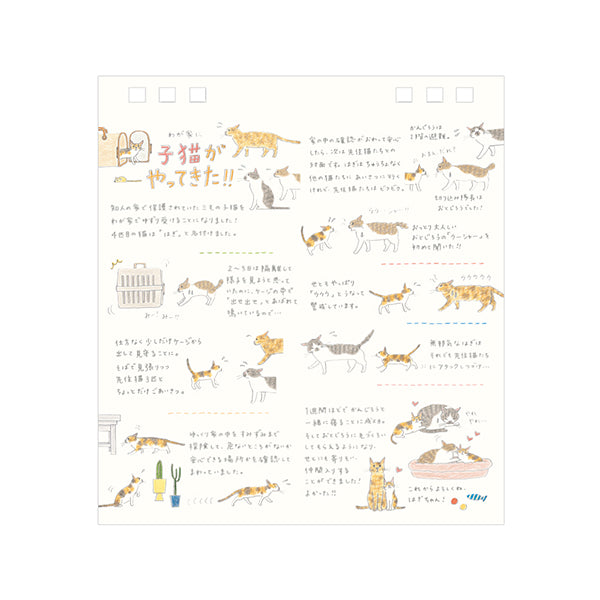 わが家に、
子猫が
やってきた!!
知人の家で保護されていたこもの子猫を
わが家でゆずり受けることになりました!
4匹目の猫は"はぎ"と名付けました。
2〜3日は隔離して
様子を見ようと思って
いたのに、ケージの中で
"出せ出せ"とあばれて
鳴いているので…
みー みー!!
仕方なく少しだけケージから
出して見守ることに。
そばで見張りつつ
先住猫3匹と
ちょっとだけごあいさつ。
ゆっくり家の中をすみずみまで
探検して、危ないところがないか
安心できる場所かを確認して
まわっていました。
家の中の確認がおわって安心
したら、次は先住猫たちとの
対面です。はぎはちゅうちょなく
他の猫たちにあいさつに行く
けれど、先住猫たちはビクビク。
かんぐろうは
2階へ避難。
おまえだれ?
切り込み隊長は
おとじろうでした!
ウウー シャー!!
おっとり大人しい
おとじろうの"ウーシャー"を
初めて聞いた!!
せともやっぱり
"ウウウ"とうなって
警戒しています。
ウウウウウ
無邪気なはぎは
それでも先住猫たち
にアタックしつづけ…
1週間ほどでかんぐろうと
一緒に寝ることに成功。
そしておとじろうにもペロペロ
してもらえるようになり、
せともに寄りそい…
仲間入りする
ことができました!
よかった!!
これからよろしくね、
はぎちゃん!